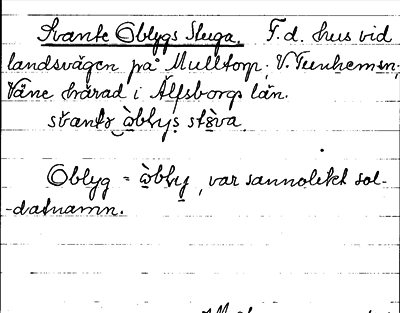 Svante Oblygs Stuga. F.d. hus vid
landsvägen på Mulltorp, V. Tunhem sn,
Väne härad i Älfsborgs län.
svantə òblygs stòva.
Oblyg = òblyg, var sannolikt sol-
-datnamn.